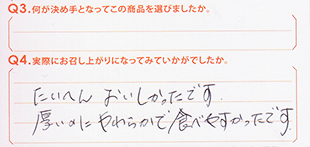 Q3.何が決め手となってこの商品を選びましたか。
Q4.実際にお召し上がりになってみていかがでしたか。
たいへん おいしかったです.
厚いのに やわらかで 食べやすかったです.